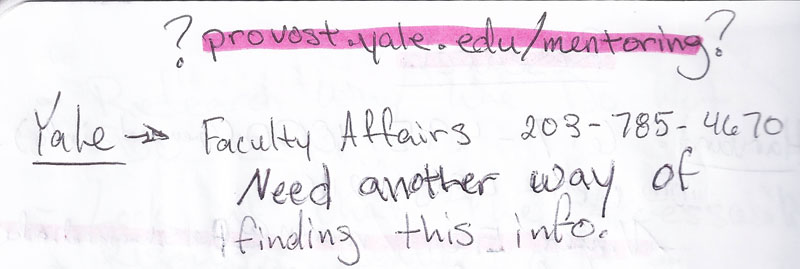 ? provost.yale.edu/mentoring?
Yale → Faculty Affairs 203-785-4670
Need another way of
finding this info.